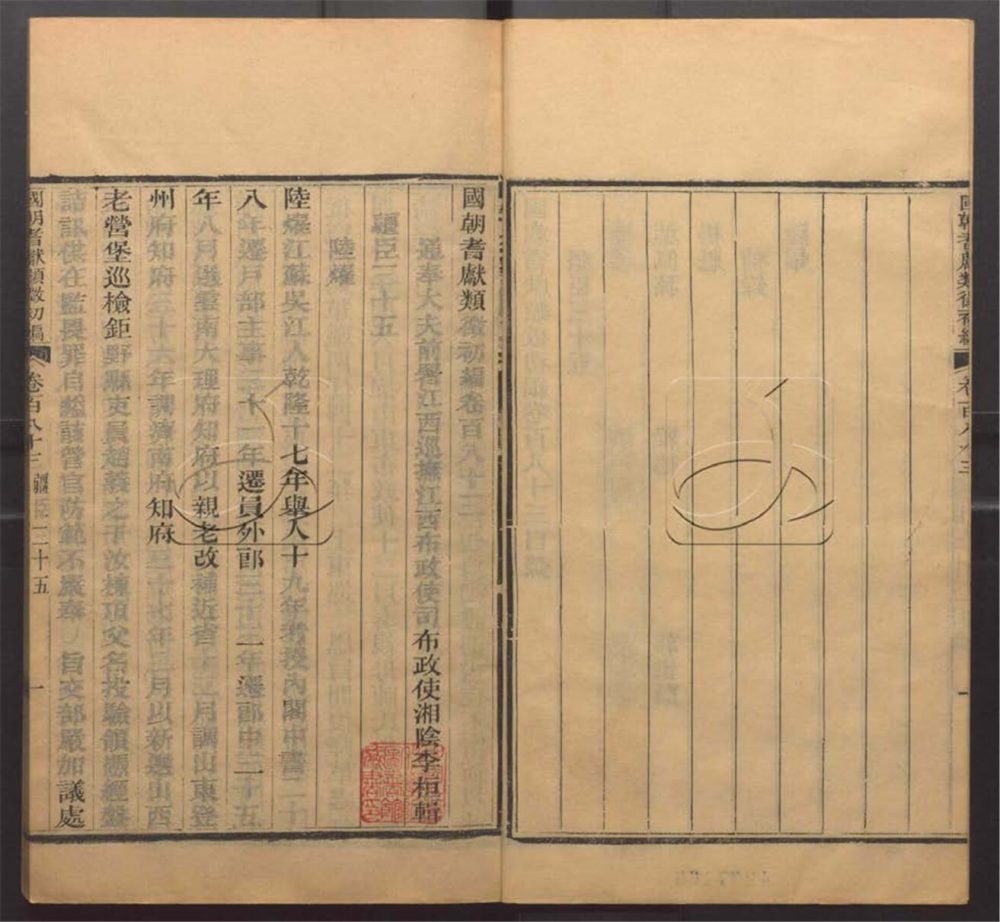 國朝耆獻類徵初編卷百八十三
通奉大夫前署江西巡撫江西布政使司布政使湘陰李桓輯
疆臣三十五
陸燿
陸燿江蘇吳江人乾隆十七年舉人十九年考授內閣中書二十
八年遷戶部主事三十一年遷員外郎三十二年遷郎中三十五
年八月選雲南大理府知府以親老改補近省十二月調山東登
州府知府三十六年調濟南府知府三十七年三月以新選山西
老營堡巡檢鉅野縣吏員趙義之子汝棟頂父名投驗領憑經盤
詰訊供在監畏罪自縊該管官防範不嚴奉 旨交部嚴加議處
國朝耆獻類徵初編 卷百八十三 疆臣三十五 一